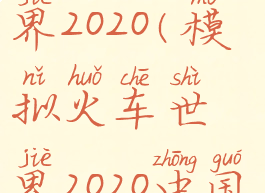 界2020(模
nǐ huǒ chē shì
拟火车世
jiè zhōng guó
界2020中国